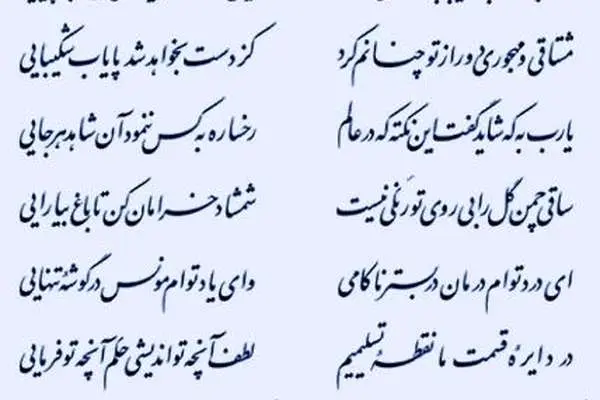 مشتاقی و مهجوری دور از تو چنانم کرد کز دست بخواهد شد پایاب شکیبایی
یا رب به که شاید گفت این نکته که در عالم رخساره به کس ننمود آن شاهد هرجایی
ساقی چمن گل را بی روی تو رنگی نیست شمشاد خرامان کن تا باغ بیارایی
ای درد توام درمان در بستر ناکامی وای یاد توام مونس در گوشهٔ تنهایی
در دایرهٔ قسمت ما نقطهٔ تسلیمیم لطف آنچه تو اندیشی حکم آنچه تو فرمایی